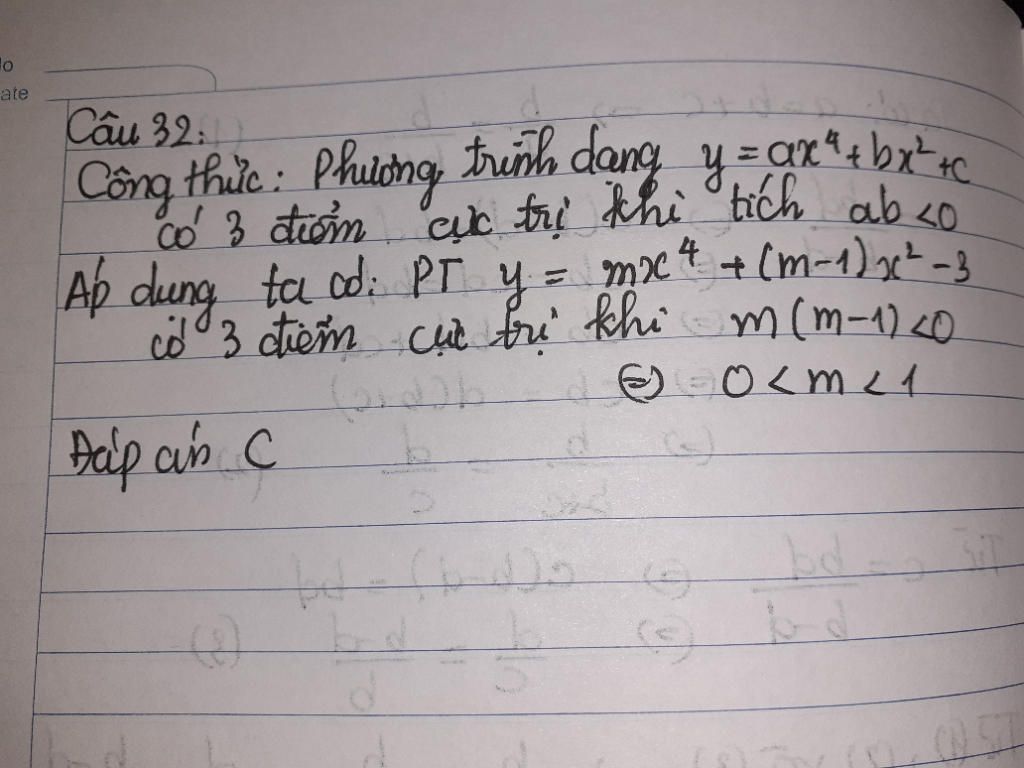 Câu 32:
Công thức: Phương trình dạng y = ax⁴ + bx² + c
có 3 điểm cực trị khi tích ab < 0
Áp dụng ta có: PT y = mx⁴ + (m-1)x² - 3
có 3 điểm cực trị khi m(m-1) < 0
⇔ 0 < m < 1
Đáp án C